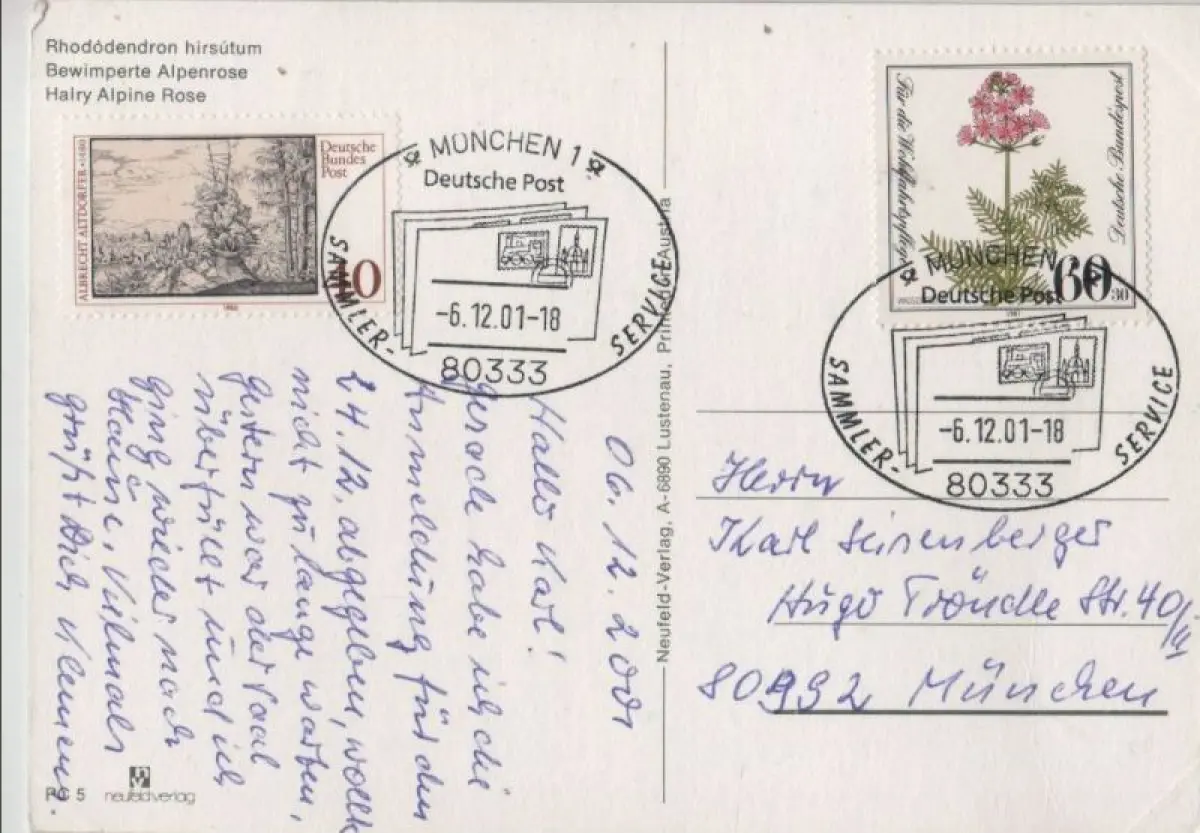 Rhodódendron hirsútum
Bewimperte Alpenrose
Halry Alpine Rose
ALBRECHT ALTDORFER · 1480
Deutsche
Bundes
Post
40
MÜNCHEN 1
Deutsche Post
-6.12.01-18
80333
SAMMLER-
SERVICE
Für die Wohlfahrtspflege
Deutsche Bundespost
60
30
MÜNCHEN
Deutsche Post
-6.12.01-18
80333
SAMMLER-
SERVICE
06.12.2001
Hallo Karl!
Gerade habe ich die
Anmeldung für den
24.12. abgegeben, wollte
nicht zu lange warten,
gestern war der Saal
überfüllt und ich
ging wieder nach
Hause. Vielmals
grüßt Dich Klemens.
Neufeld-Verlag, A-6890 Lustenau, Printed in Austria
Herrn
Karl
Hugo Tröndle Str. 40/II
80992 München
5
neufeldverlag